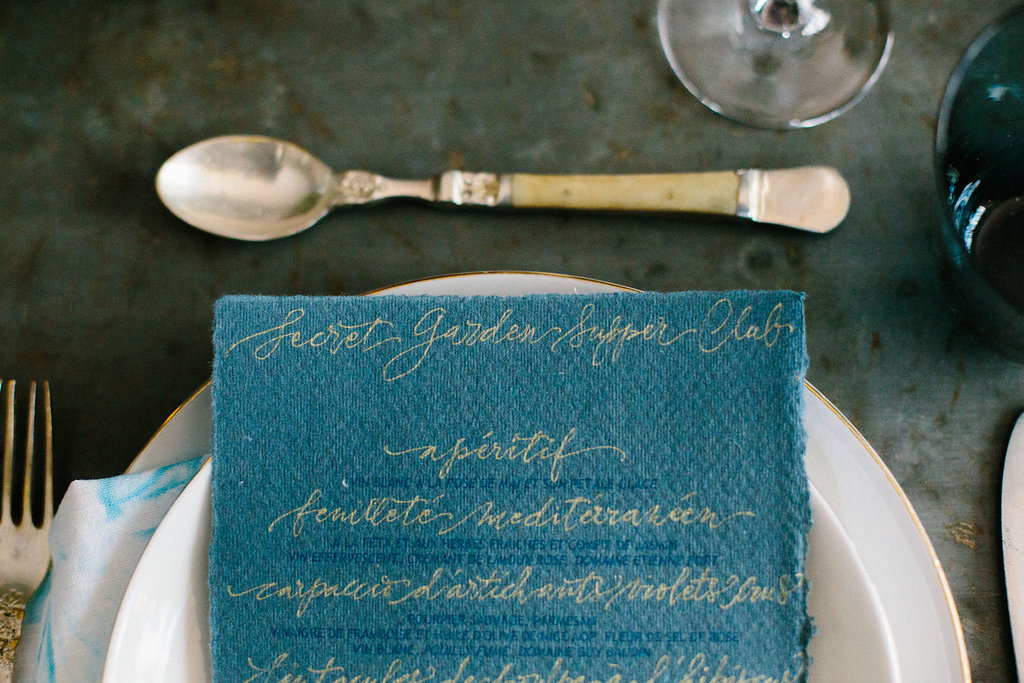 Secret Garden Supper Club
apéritif
VIN BLANC À LA ROSE DE MAI ET SON PÉTALE GLACÉ
feuilleté mediterranéen
À LA FETA ET AUX HERBES FRAICHES ET COMPIT DE
VIN EFFERVESCENT, CRÉMANT DE LIMOUX ROSÉ, DOMAINE ETIENNE FORT
carpaccio d'artichants violets crus
POURPIER SAUVAGE, PARMESAN
VINAIGRE DE FRAMBOISE ET HUILE D'OLIVE DE NICE AOP, FLEUR DE SEL DE ROSE
VIN BLANC, POUILLY FUMÉ, DOMAINE GUY BAUDIN